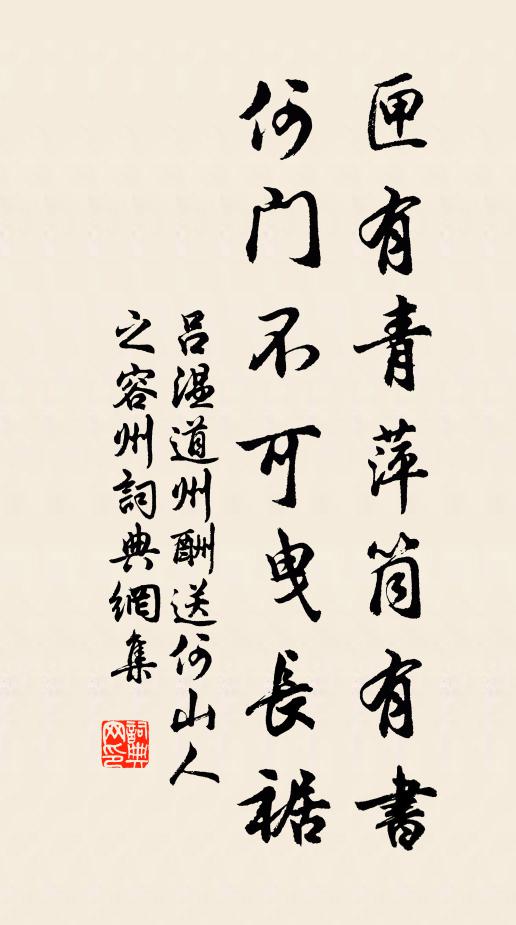 匣有青萍筒有書
何門不可曳長裾
呂溫道州酬送何山人
之容州詞典網集
詞典
网印